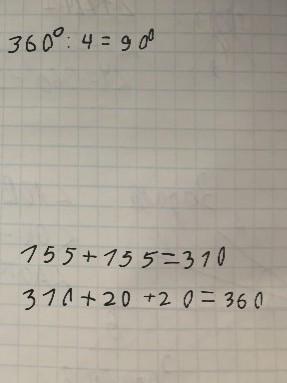 360⁰ : 4 = 90⁰
155+155=310
310+20+20=360